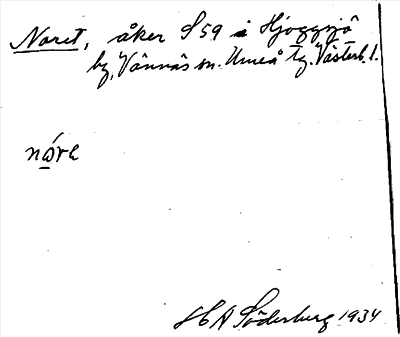 Noret, åker S59 i Hjoggsjö
by, Vännäs sn. Umeå tg. Västerb. l.
nώ̨rє
H A Söderberg 1934